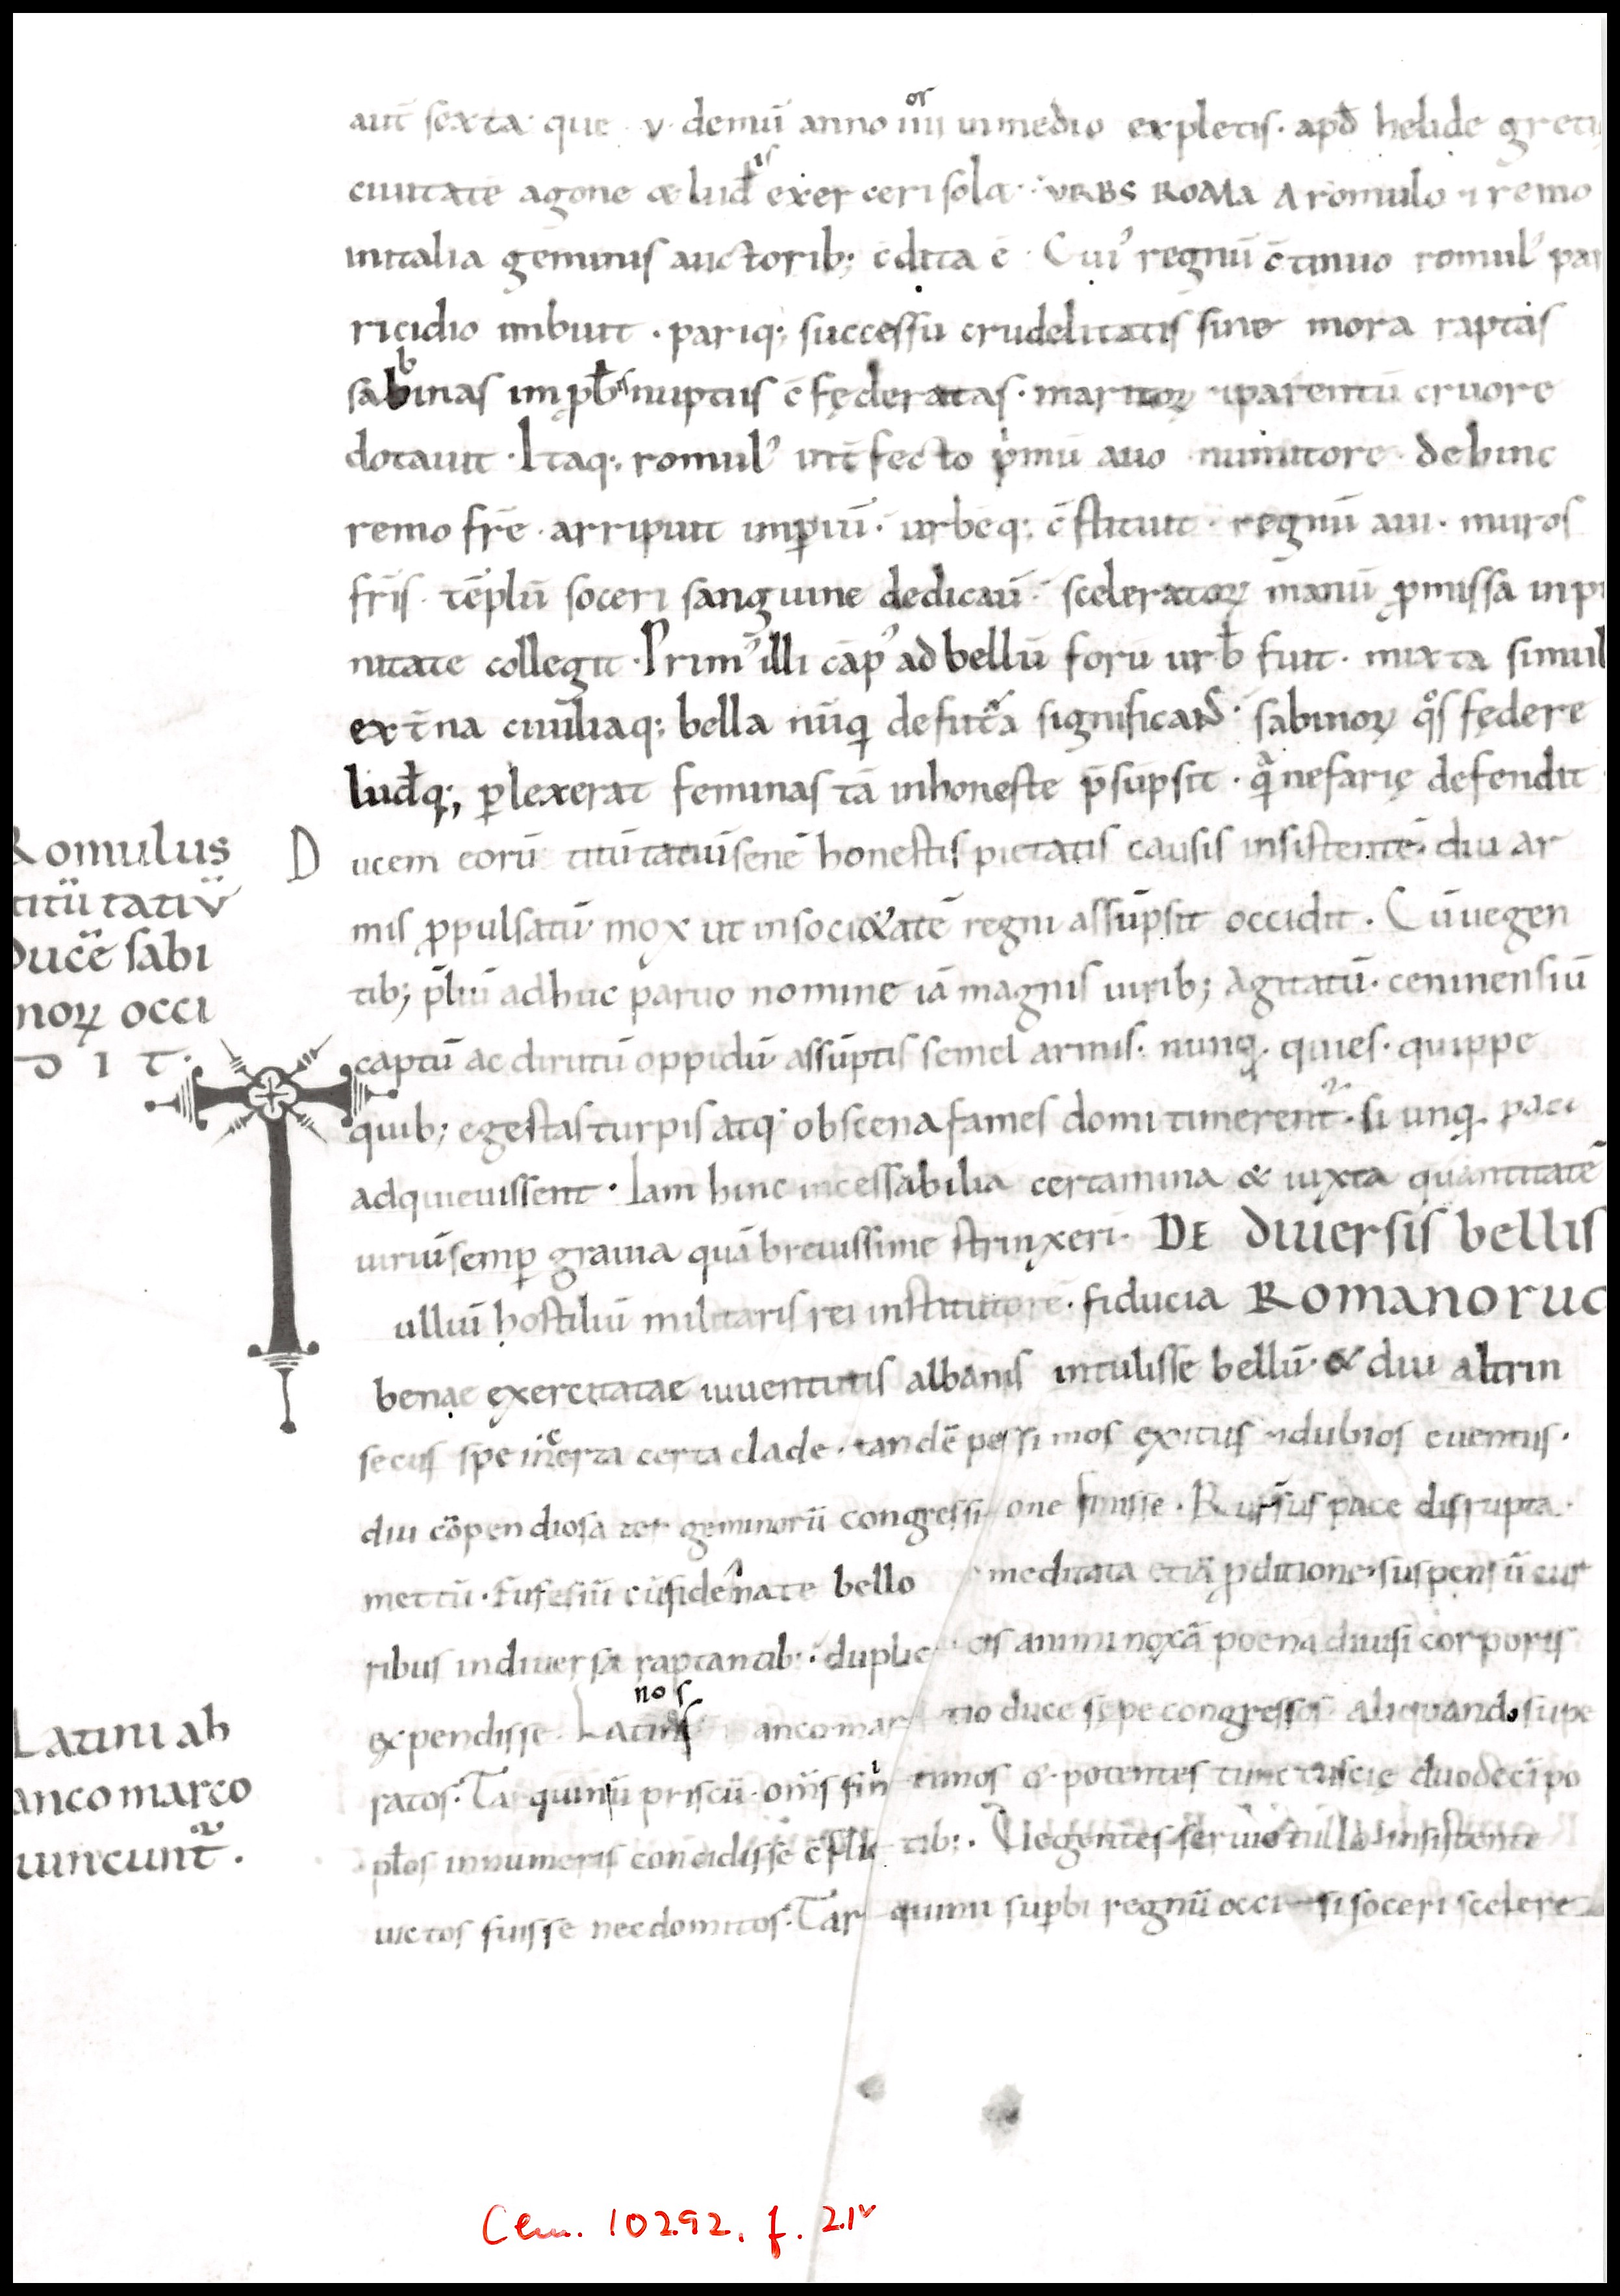 aut̄ sexta· que ·v· demū anno iiii^or in medio expletis· apđ helide greti
ciuitate agone & lud^is exerceri sol& ·:· VRBS ROMA A romulo ⁊ remo
initalia geminis auctorib; c̄dita ē · Cui᾽ regnū c̄tinuo romul᾽ par
ricidio imbuit · pariq; successu crudelitatis sine mora raptas
sabinas imp̱ƀ^is nuptiis c̄ fęderatas · maritoꝝ ⁊ parentū cruore
dotauit · Itaq; romul᾽ int̄fecto p^imū auo numitore · dehinc
remo frē · arripuit imꝑiū · urbēq; c̄stituit · regnū aui · muros
fris · tēplū soceri sanguine dedicaū · sceleratoꝝ manū ꝓmissa inpu
nitate collegit · Prim᾽ illi cāp᾽ ad bellū forū urƀ fuit · mixta simul
ext̄na ciuiliaq; bella nūq defut^a significand · sabinoꝝ q^os fędere
luđq; ꝑlexerat feminas tā inhoneste p̄sūpsit · q^a nefarię defendit
D ucem eorū titū tatiū senē honestis pietatis causis insistentē · diu ar
mis ꝓpulsatū mox ut in soci&atē regni assūpsit occidit · Cū uegen
tib; p̄liū adhuc paruo nomine iā magnis uirib; Agitatū · ceninensiū
captū ac dirutū oppidū assūptis semel armis · nunq · quies · quippe
quib; egestas turpis atq· obscena fames domi timerent^r · si unq · paci
adquieuissent · Iam hinc incessabilia certamina & iuxta quantitatē
uiriū semꝑ grauia quā breuissime strinxeri · DE diuersis bellis
ulliū hostiliū militaris rei institutorē · fiducia ROMANORUC
benae exercitatae iuuentutis albanis intulisse bellū · & diu altrin
secus spe incerta certa clade · tandē pessimos exitus ⁊ dubios euentus ·
diu cōpendiosa ter geminorū congressione finisse · Rursus pace disrupta ·
mettū · Fufesiū cū fidenate bello meditata etiā ꝓditione · suspensū cur
ribus in diuersa raptantib; · duplicis animi noxā poena diuisi corporis
expendisse · Latinos anco martio duce sępe congressos aliquando supe
ratos · Tarquiniū priscū · oms finitimos & · potentes tunc tuscię duodecī po
pl̄os innumeris concidisse c̄flictib; · Uegentes seruio tullo insistente
uictos fuisse nec domitos · Tarquinii suꝑbi regnū occisi soceri scelere
Romulus
titū tatiū
Ducē sabi
noꝝ occi
D I T ·
Latini ab
anco marco
uincunt^r ·
Clm. 10292, f. 21v